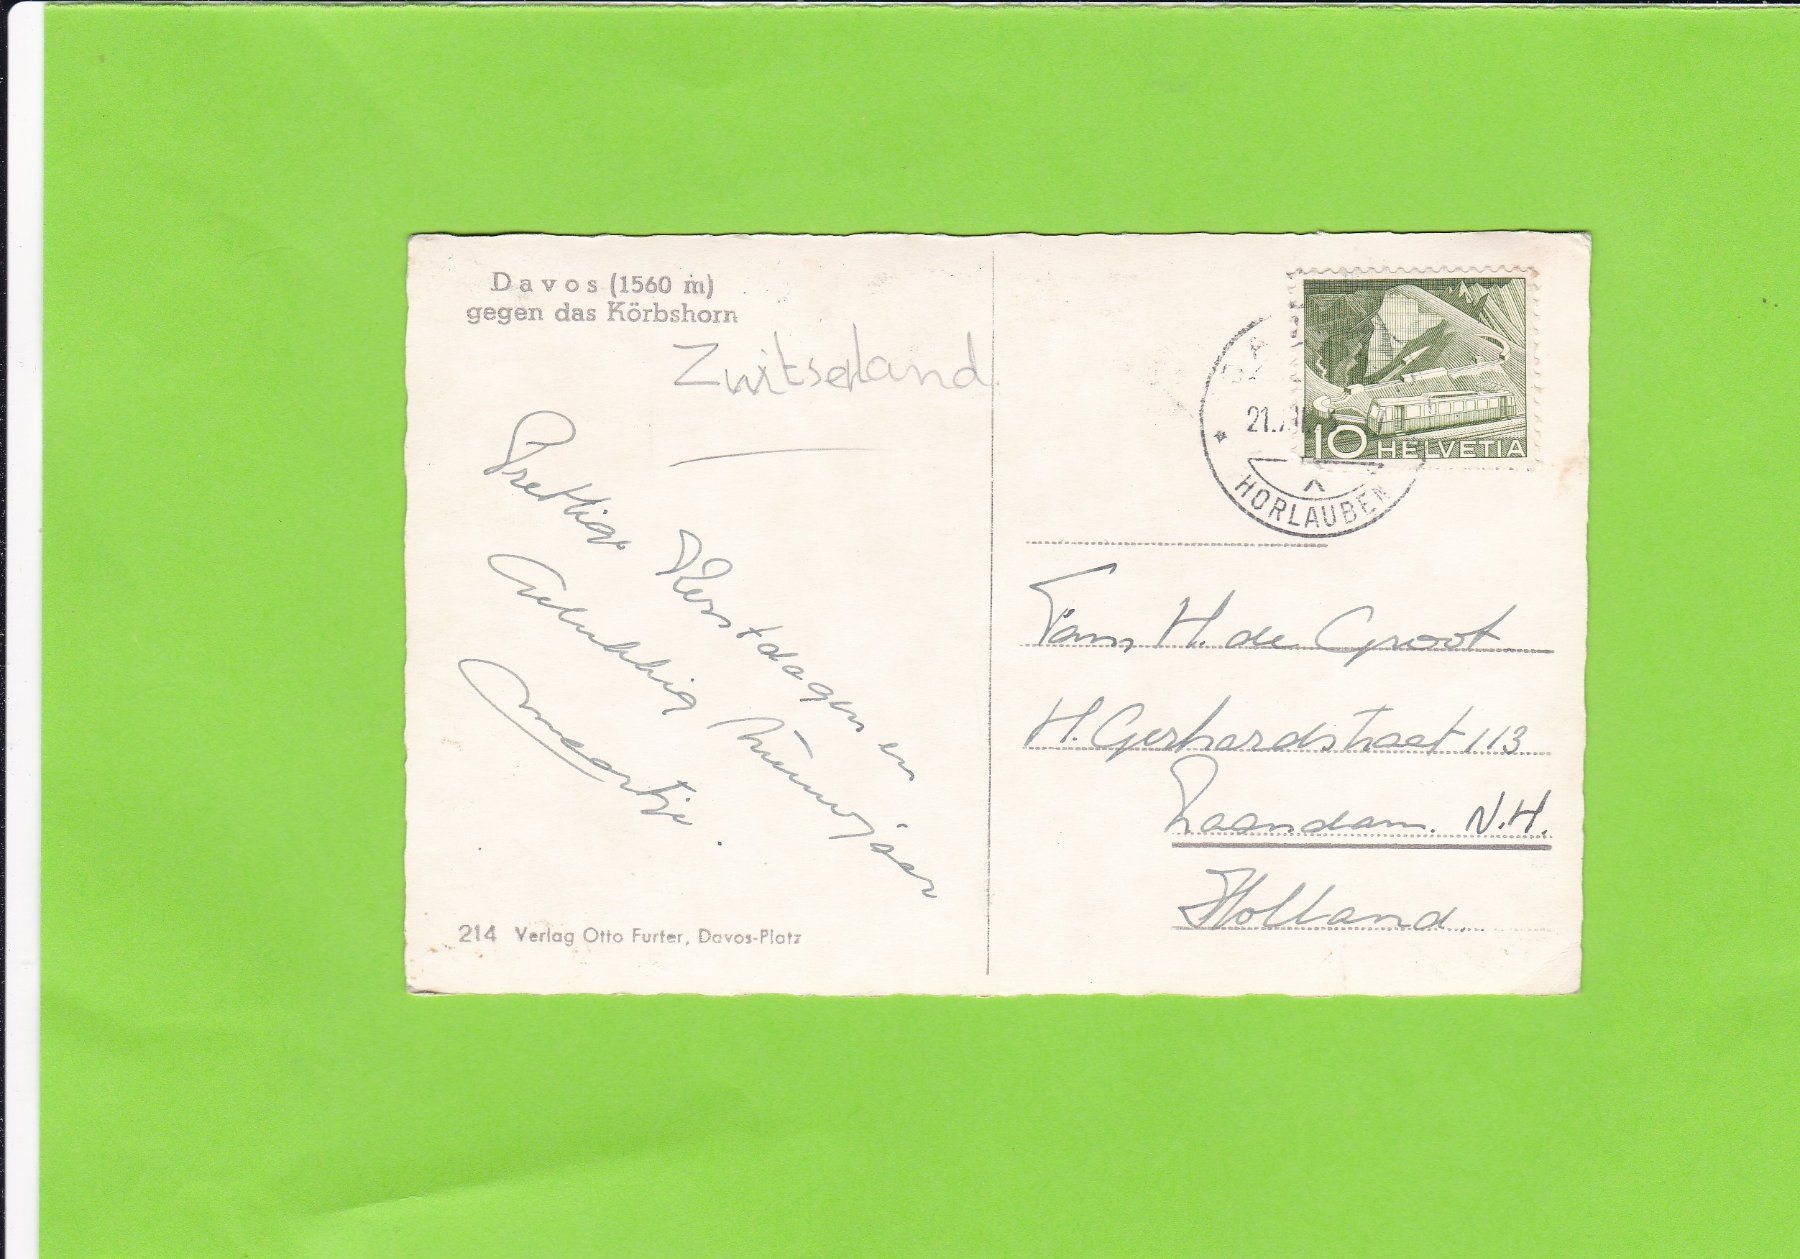 Davos (1560 m)
gegen das Körbshorn
Zwitserland
Prettige Kerstdagen en
Gelukkig Nieuwjaar
Maartje.
214 Verlag Otto Furter, Davos-Platz
21.
HORLAUBEN
10 HELVETIA
Fam H. de Groot
H. Gerhardstraat 113
Zaandam. N.H.
Holland.